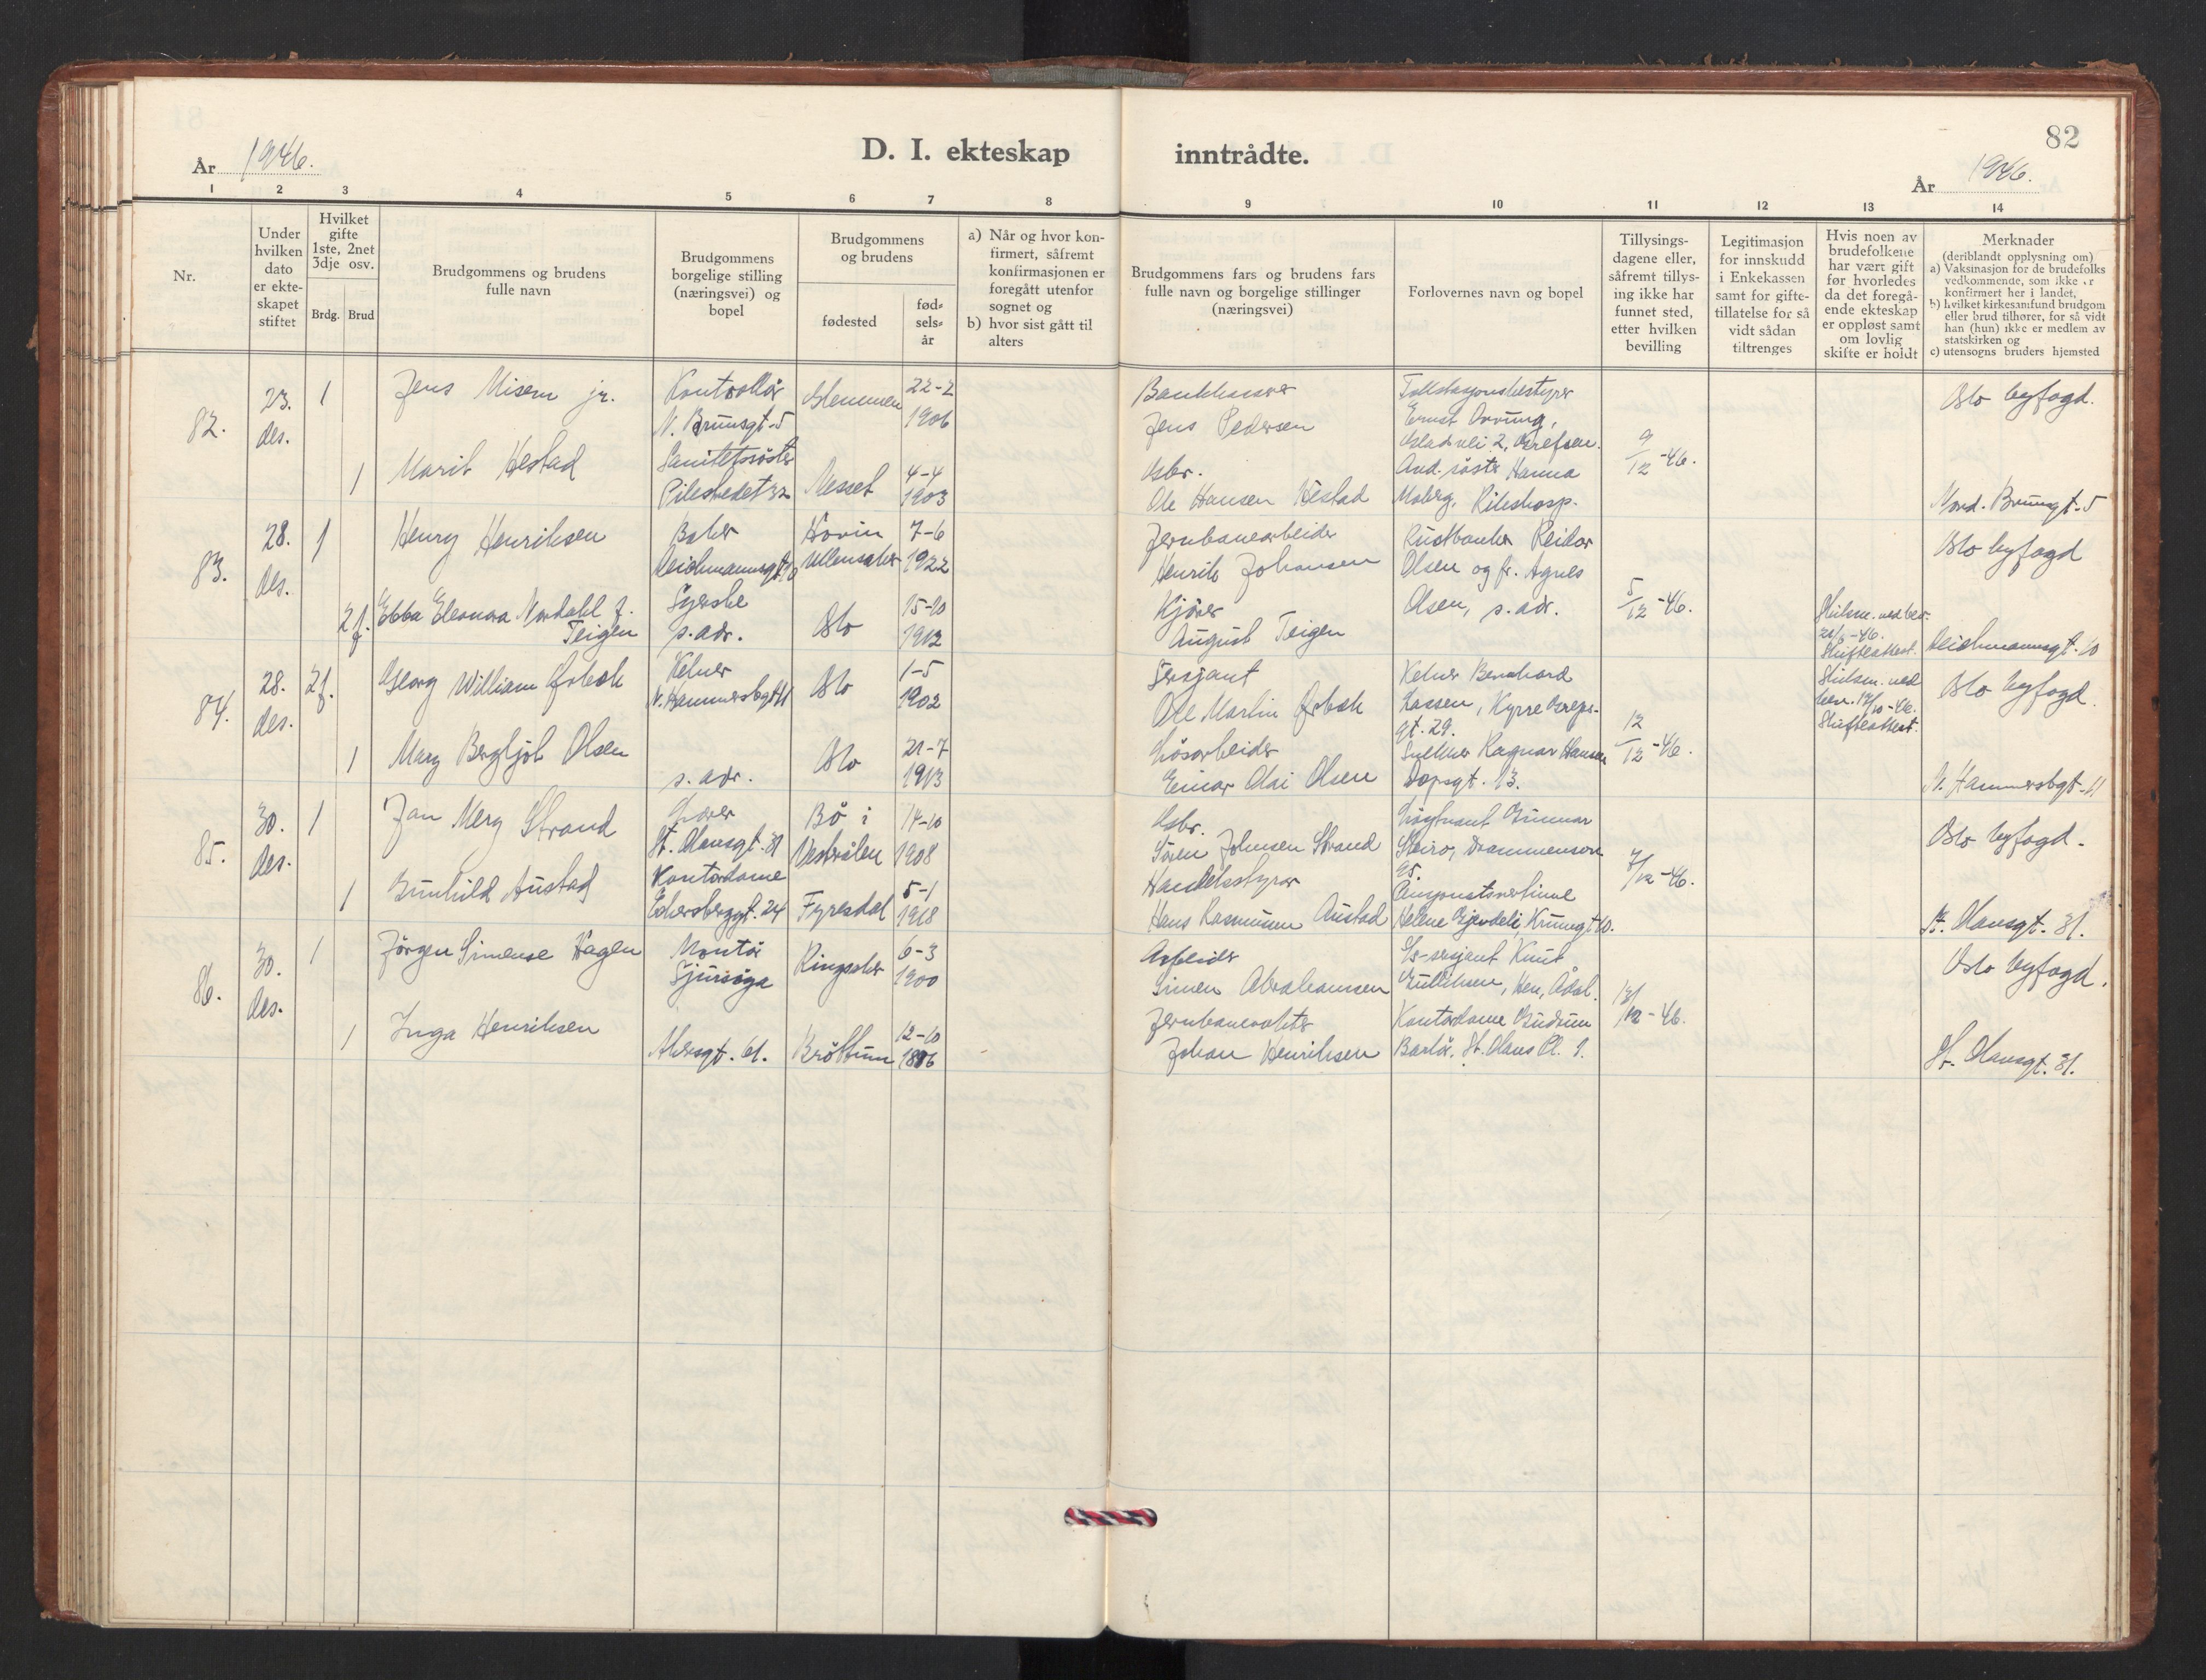 82
År 1946.
D. I. ekteskap inntrådte.
År 1946.
1 2 3 4 5 6 7 8 9 10 11 12 13 14
Nr.
Under hvilken dato er ekte-skapet stiftet
Hvilket gifte 1ste, 2net 3dje osv.
Brdg. Brud
Brudgommens og brudens fulle navn
Brudgommens borgelige stilling (næringsvei) og bopel
Brudgommens og brudens
fødested
fød-sels-år
a) Når og hvor kon-firmert, såfremt konfirmasjonen er foregått utenfor sognet og
b) hvor sist gått til alters
Brudgommens fars og brudens fars fulle navn og borgelige stillinger (næringsvei)
Forlovernes navn og bopel
Tillysings-dagene eller, såfremt tillys-ing ikke har funnet sted, etter hvilken bevilling
Legitimasjon for innskudd i Enkekassen samt for gifte-tillatelse for så vidt sådan tiltrenges
Hvis noen av brudefolkene har vært gift før hvorledes da det foregå-ende ekteskap er oppløst samt om lovlig skifte er holdt
Merknader (deriblandt opplysning om)
a) Vaksinasjon for de brudefolks vedkommende, som ikke er konfirmert her i landet,
b) hvilket kirkesamfund brudgom eller brud tilhører, for så vidt han (hun) ikke er medlem av statskirken og
c) utensogns bruders hjemsted
82.
23. des.
1
Jens Misem jr.
Kontrollør
N. Brunsgt. 5
Glemmen
22-2
1906
Jens Pedersen
Ernst
Oslo byfogd.
1
Marit Hestad
Sanitetssøster
Pilestredet 32
Nesset
4-4
1903
Gbr.
Ole Hansen Hestad
And. søster Hanna
Moberg, Rikshosp.
9/12-46.
Nord. Brungt. 5
83.
28. des.
1
Henry Henriksen
Baker
Deichmannsgt. 10
Hovin
Ullensaker
7-6
1922
Jernbanearbeider
Henrik Johansen
Reidar
Olsen og fr. Agnes
Olsen, s. adr.
Oslo byfogd
2 f.
Ebba Eleonora Nordahl f.
Teigen
Syerske
s. adr.
Oslo
15-10
1912
Kjører
August Teigen
5/12-46.
Skifteattest.
Deichmannsgt. 10
84.
28. des.
2 f.
Georg William Ørbeck
Kelner
N. Hammersbgt 11
Oslo
1-5
1902
Sersjant
Ole Martin Ørbek
Kelner Bernhard
Lassen, Kyrre Greps-
gt. 29.
Skilsm. ved
bev. 14/10-46.
Skifteattest.
Oslo byfogd.
1
Mary Bergljot Olsen
s. adr.
Oslo
21-7
1913
Løsarbeider
Einar Olai Olsen
Snekker Ragnar Hansen
Dopsgt. 13.
12/12-46.
N. Hammersbgt. 11
85.
30. des.
1
Jan Merg Strand
Lærer
St. Olavsgt. 31
Bø i
Vesterålen
14-10
1908
Gbr.
Søren Johnsen Strand
Løytnant Gunnar
Steiro, Drammensvn
95.
Oslo byfogd.
1
Gunhild Austad
Kontordame
Eckersberggt. 24
Fyresdal
5-1
1918
Handelsstyrer
Hans Rasmussen Austad
Pensjonatsvertinne
Helene Gjendeli, Krumgt 10.
7/12-46.
St. Olavsgt. 31.
86.
30. des.
1
Jørgen Simense Hagen
Montør
Ringsaker
6-3
1900
Arbeider
Simen Abrahamsen
Knut
Gulliksen, Hen, Ådal.
Oslo byfogd.
1
Inga Henriksen
Akersgt. 61.
Brøttum
12-10
Jernbanevokter
Johan Henriksen
Kontordame Gudrun
Bartår, St. Olavs Pl. 1.
13/12-46.
St. Olavsgt. 31.